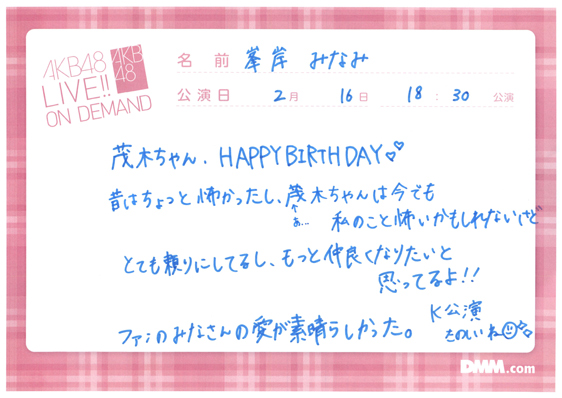 AKB48
LIVE!!
ON DEMAND
AKB
48
名前 峯岸 みなみ
公演日 2月 16日 18:30 公演
茂木ちゃん、HAPPY BIRTHDAY♡♡
昔はちょっと怖かったし、茂木ちゃんは今でも
↑
あ...
私のこと怖いかもしれないけど
とても頼りにしてるし、もっと仲良くなりたいと
思ってるよ!!
K公演
たのしいね
ファンのみなさんの愛が素晴らしかった。
DMM.com